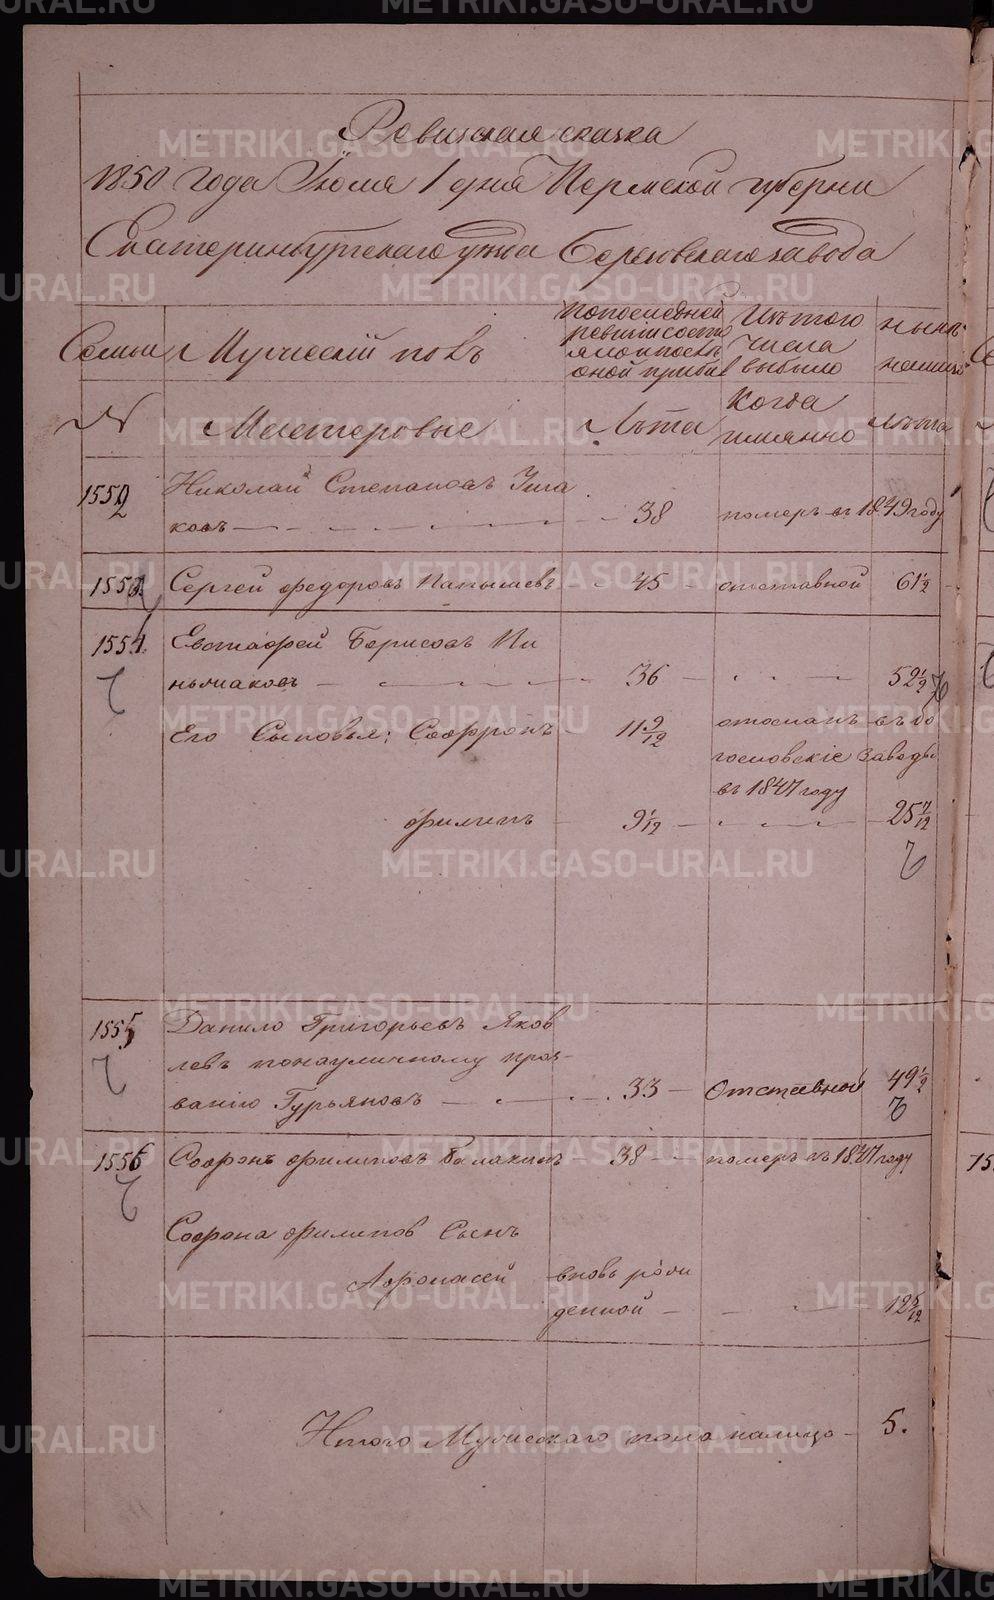 METRIKI.GASO-URAL.RU
Ревизская сказка
1850 года Июля 1 дня Пермской губерни
Екатеринбургского уезда Березовского завода
Семьи
Мужеский полъ
По последней
ревизии состо
яло и после
оной прибы
Изъ того
числа
выбыло
ныне
налицо
№
Мастеровые
Лѣта
Когда
имянно
Лѣта
1552
Николай Степановъ
ковъ — 38 померъ въ 1849 году
1553 Сергей Федоровъ 45 отставной 61 1/2
1554 Евстафей Борисовъ Пи
ньжаковъ — 36 — 52 1/2
Его Сыновья: Софронъ 11 9/12 отосланъ въ бо
гословскіе заводы
въ 1847 году
Филипъ 9 1/12 — 25 7/12
1555 Данило Григорьевъ Яков
левъ понауличному проз-
ванію Гурьяновъ — 33 — Отставной 49 1/2
1556 Софронъ Филиповъ Балакинъ 38 — померъ въ 1847 году
Софрона Филипов Сынъ
Афонасей вновь рож
денной — 12 5/12
Итого Мужескаго пола налицо — 5.